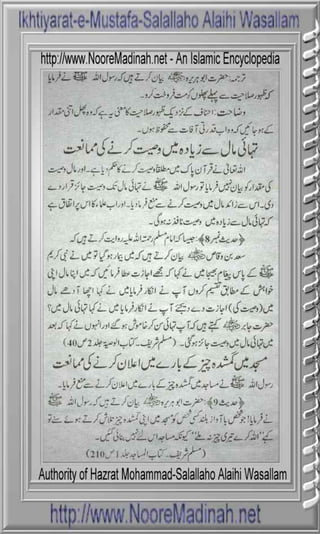 Ikhtiyarat-e-Mustafa-Salallaho Alaihi Wasallam
http://www.NooreMadinah.net - An Islamic Encyclopedia
ترجمہ: حضرت ابو ہریرہ ﷜ بیان کرتے ہیں کہ رسول اللہ ﷺ نے فرمایا
کہ ظہور صلاحیت سے پہلے پھلوں کو مت فروخت کرو۔
وضاحت: احناف کے نزدیک ظہور صلاحیت کا معنی یہ ہے کہ وہ پھل اتنی مقدار
کے ہو جائیں کہ وہ اب قدرتی آفات سے محفوظ ہوں۔
تہائی مال سے زیادہ میں وصیت کرنے کی ممانعت
اللہ تعالیٰ نے قرآن پاک میں مطلقاً وصیت کرنے کا حکم دیا ہے۔ اور مال
کی مقدار کو بیان نہیں فرمایا تو رسول اللہ ﷺ نے تہائی مال تک وصیت جائز قرار دے
دی۔ اس سے زائد مال میں وصیت کرنے سے منع فرما دیا۔ اور اب علماء کا اس پر اتفاق ہے
کہ تہائی مال سے زیادہ میں وصیت نافذ نہ ہوگی۔
﴿حدیث نمبر 8﴾: جیسا کہ امام مسلم رحمۃ اللہ علیہ روایت کرتے ہیں کہ
سعد بن وقاص ﷜ بیان کرتے ہیں کہ میں بیمار ہو گیا تو میں نے نبی کریم
ﷺ کے پاس پیغام بھیجا میں نے کہا کہ مجھے اجازت عطا فرمائیں کہ میں اپنا مال اپنی
خواہش کے مطابق تقسیم کروں آپ نے انکار فرمایا میں نے کہا اچھا آدھے مال
میں (وصیت کی) اجازت دے دیجئے آپ نے انکار فرمایا میں نے کہا تہائی مال میں؟
حضرت جابر ﷜ کہتے ہیں کہ آپ تہائی سن کر خاموش ہو گئے اور انہوں نے کہا کہ بعد
میں تہائی مال میں وصیت جائز ہو گئی۔ (مسلم شریف۔ کتاب الوصیۃ جلد 2 ص 40)
مسجد میں گمشدہ چیز کے بارے میں اعلان کرنے کی ممانعت
رسول اللہ ﷺ نے مساجد میں گمشدہ چیز کے بارے میں اعلان کرنے سے منع فرمایا۔
﴿حدیث 9﴾: حضرت ابو ہریرہ ﷜ بیان کرتے ہیں کہ رسول اللہ ﷺ
نے فرمایا: جو شخص با آواز بلند کسی شخص کو مسجد میں اپنی گمشدہ چیز تلاش کرتے ہوئے سنے تو
کہے "اللہ کرے تیری چیز نہ ملے" کیونکہ مساجد اس لئے نہیں بنائی گئیں۔
(مسلم شریف۔ کتاب المساجد جلد 1 ص 210)
Authority of Hazrat Mohammad-Salallaho Alaihi Wasallam
http://www.NooreMadinah.net